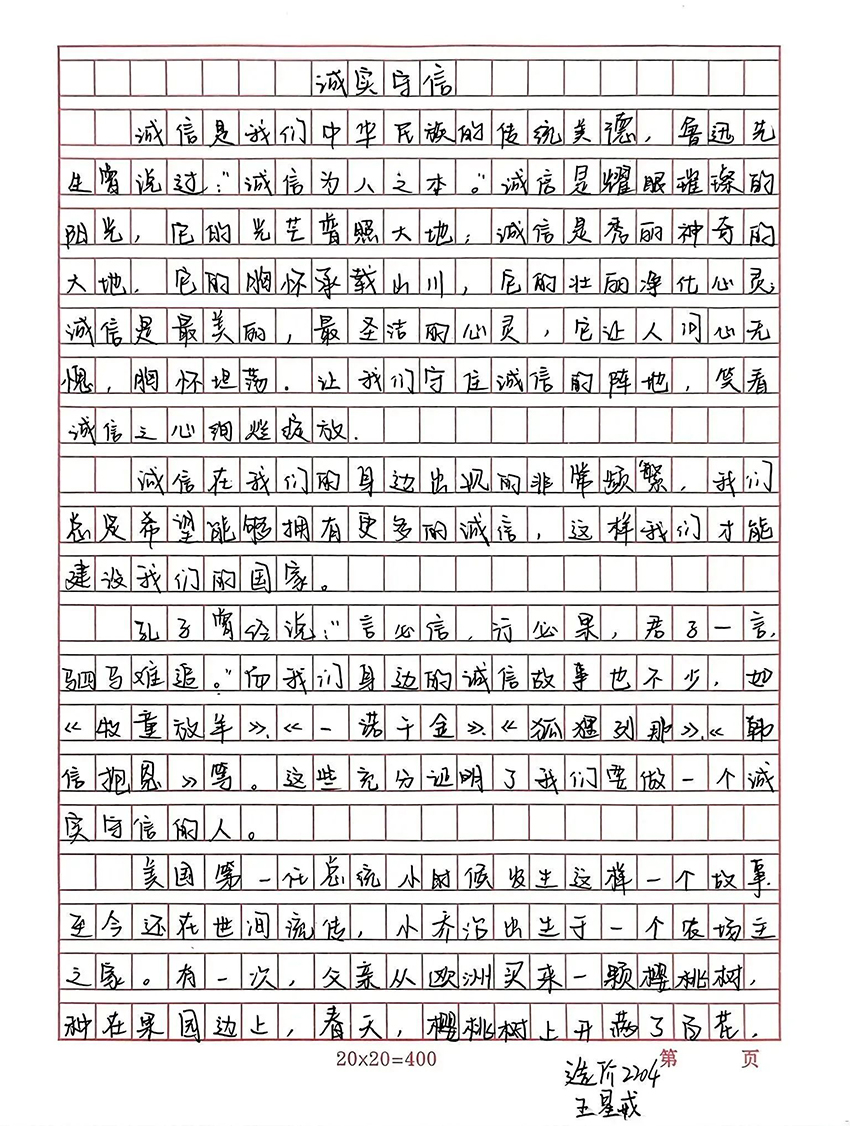 诚实守信
诚信是我们中华民族的传统美德，鲁迅先
生曾说过:"诚信为人之本。"诚信是耀眼璀璨的
阳光，它的光芒普照大地；诚信是秀丽神奇的
大地，它的胸怀承载山川，它的壮丽净化心灵；
诚信是最美丽，最圣洁的心灵，它让人问心无
愧，胸怀坦荡．让我们守住诚信的阵地，笑看
诚信之心绚烂绽放．
诚信在我们的身边出现的非常频繁，我们
总是希望能够拥有更多的诚信，这样我们才能
建设我们的国家。
孔子曾经说:"言必信，行必果，君子一言，
驷马难追。"而我们身边的诚信故事也不少，如
《牧童放羊》、《一诺千金》、《狐狸列那》、《韩
信抱恩》等。这些充分证明了我们要做一个诚
实守信的人。
美国第一任总统小时候发生这样一个故事
至今还在世间流传，小乔治出生于一个农场主
之家。有一次，父亲从欧洲买来一颗樱桃树，
种在果园边上，春天，樱桃树上开满了百花，
20x20=400
第 页
造价2204